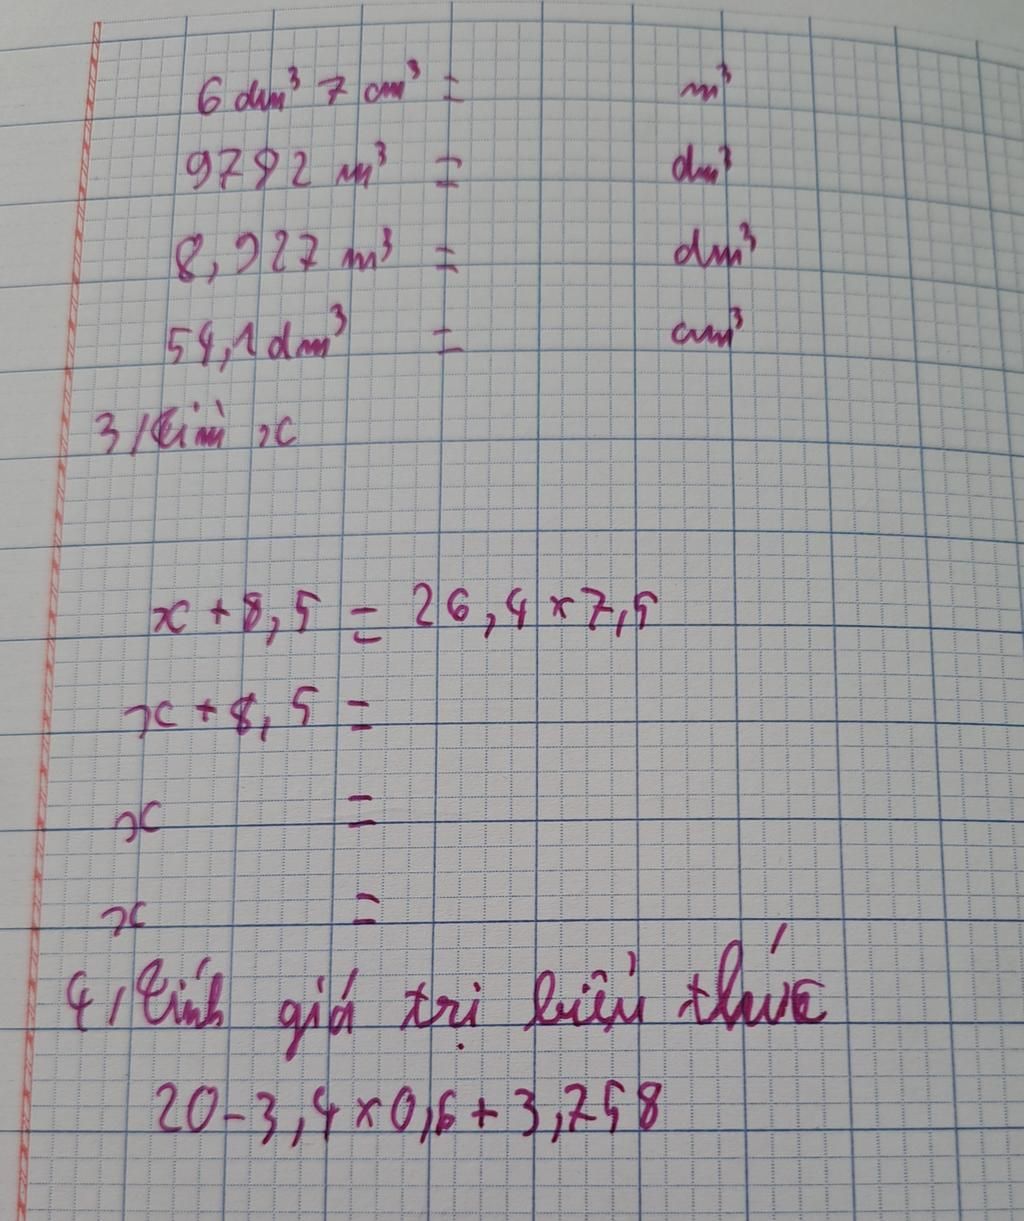 6 dm³ 7 cm³ = m³
9792 m³ = dm³
8,927 m³ = dm³
54,1 dm³ = cm³
3, tìm x
x + 8,5 = 26,4 × 7,5
x + 8,5 =
x =
x =
4, tính giá trị biểu thức
20 - 3,4 × 0,6 + 3,758